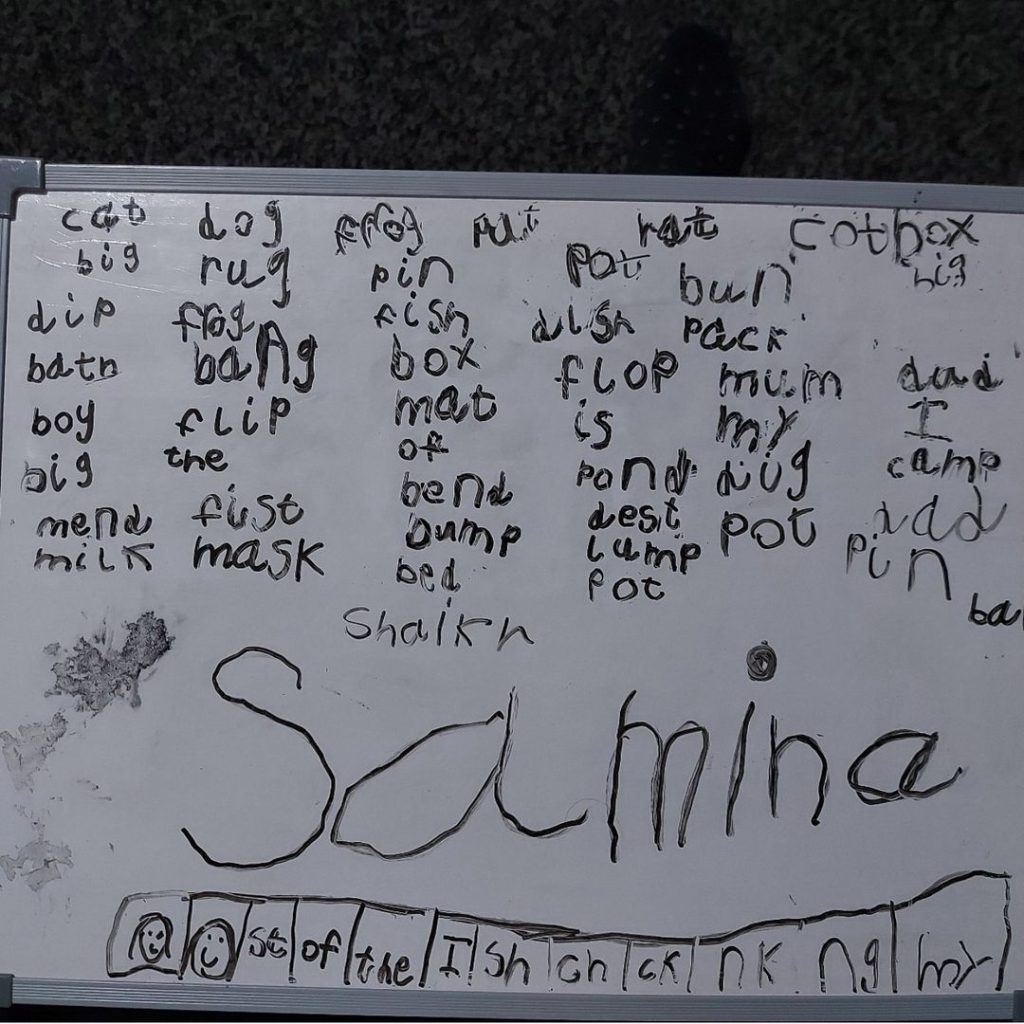 cat dog frog rat cot box
big rug pin pot bun big
dip frog fish dish pack
bath bang box flop mum dad
boy flip mat is my I
big the of pond dug camp
mend fist bend desk pot dad
milk mask bump lump pin
bed pot ba
Shaikh
Samina
st of the I Sh ch ck nk ng my